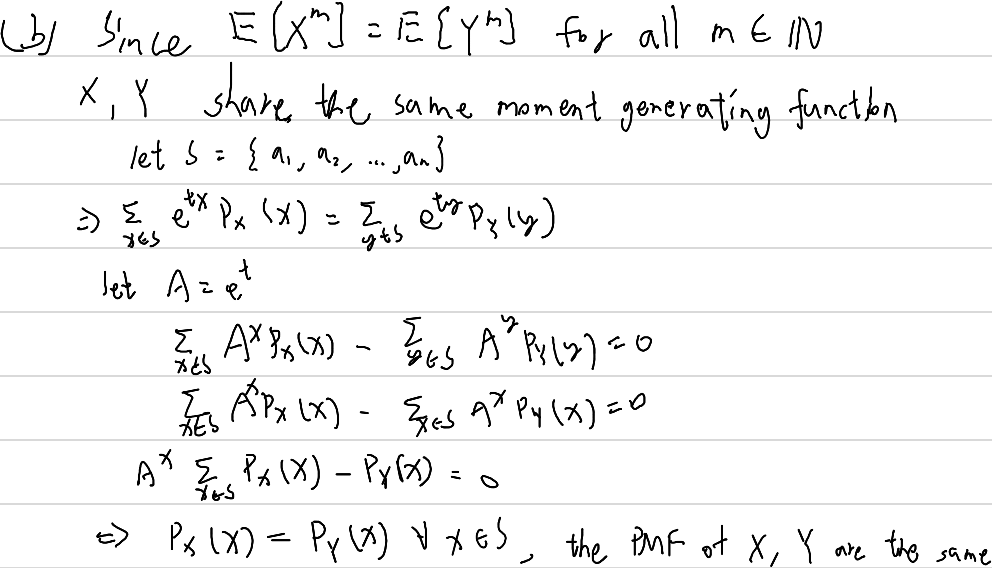 (b) Since 𝔼[X^m] = 𝔼[Y^m] for all m ∈ ℕ
X, Y share the same moment generating function
let S = {a₁, a₂, ..., aₙ}
⇒ Σ_{x∈S} e^{tx} P_X(x) = Σ_{y∈S} e^{ty} P_Y(y)
let A = e^t
Σ_{x∈S} A^x P_X(x) - Σ_{y∈S} A^y P_Y(y) = 0
Σ_{x∈S} A^x P_X(x) - Σ_{x∈S} A^x P_Y(x) = 0
A^x Σ_{x∈S} P_X(x) - P_Y(x) = 0
⇔ P_X(x) = P_Y(x) ∀ x ∈ S, the PMF of X, Y are the same